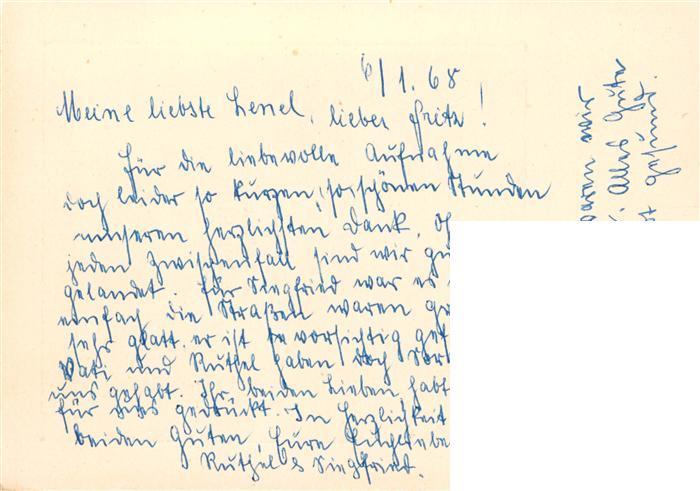 6/1.68
Meine liebste Lessel, lieber Fritz!
Für die liebevolle Aufnahme
doch leider so kurzen, so schönen Stunden
unseren herzlichsten Dank.
jeden Zwischenfall sind wir
gelandet. Für Siegfried war es
einfach, die Straßen waren
sehr glatt. er ist so vorsichtig
Vati und Ruthel haben doch
uns gehabt. Ihr beiden Lieben, habt
für uns gedrückt. In Herzlichkeit
beiden Guten, Eure Euch
Ruthel & Siegfried.
waren wir
Alles Gute
gesund.